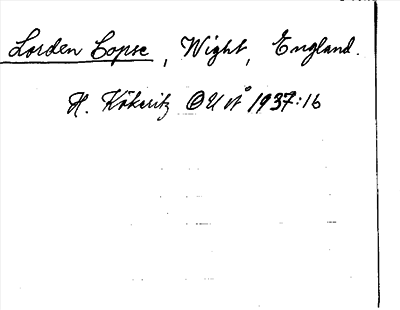 Lorden Copse, Wight, England.
H. Kökeritz OUÅ 1937:16